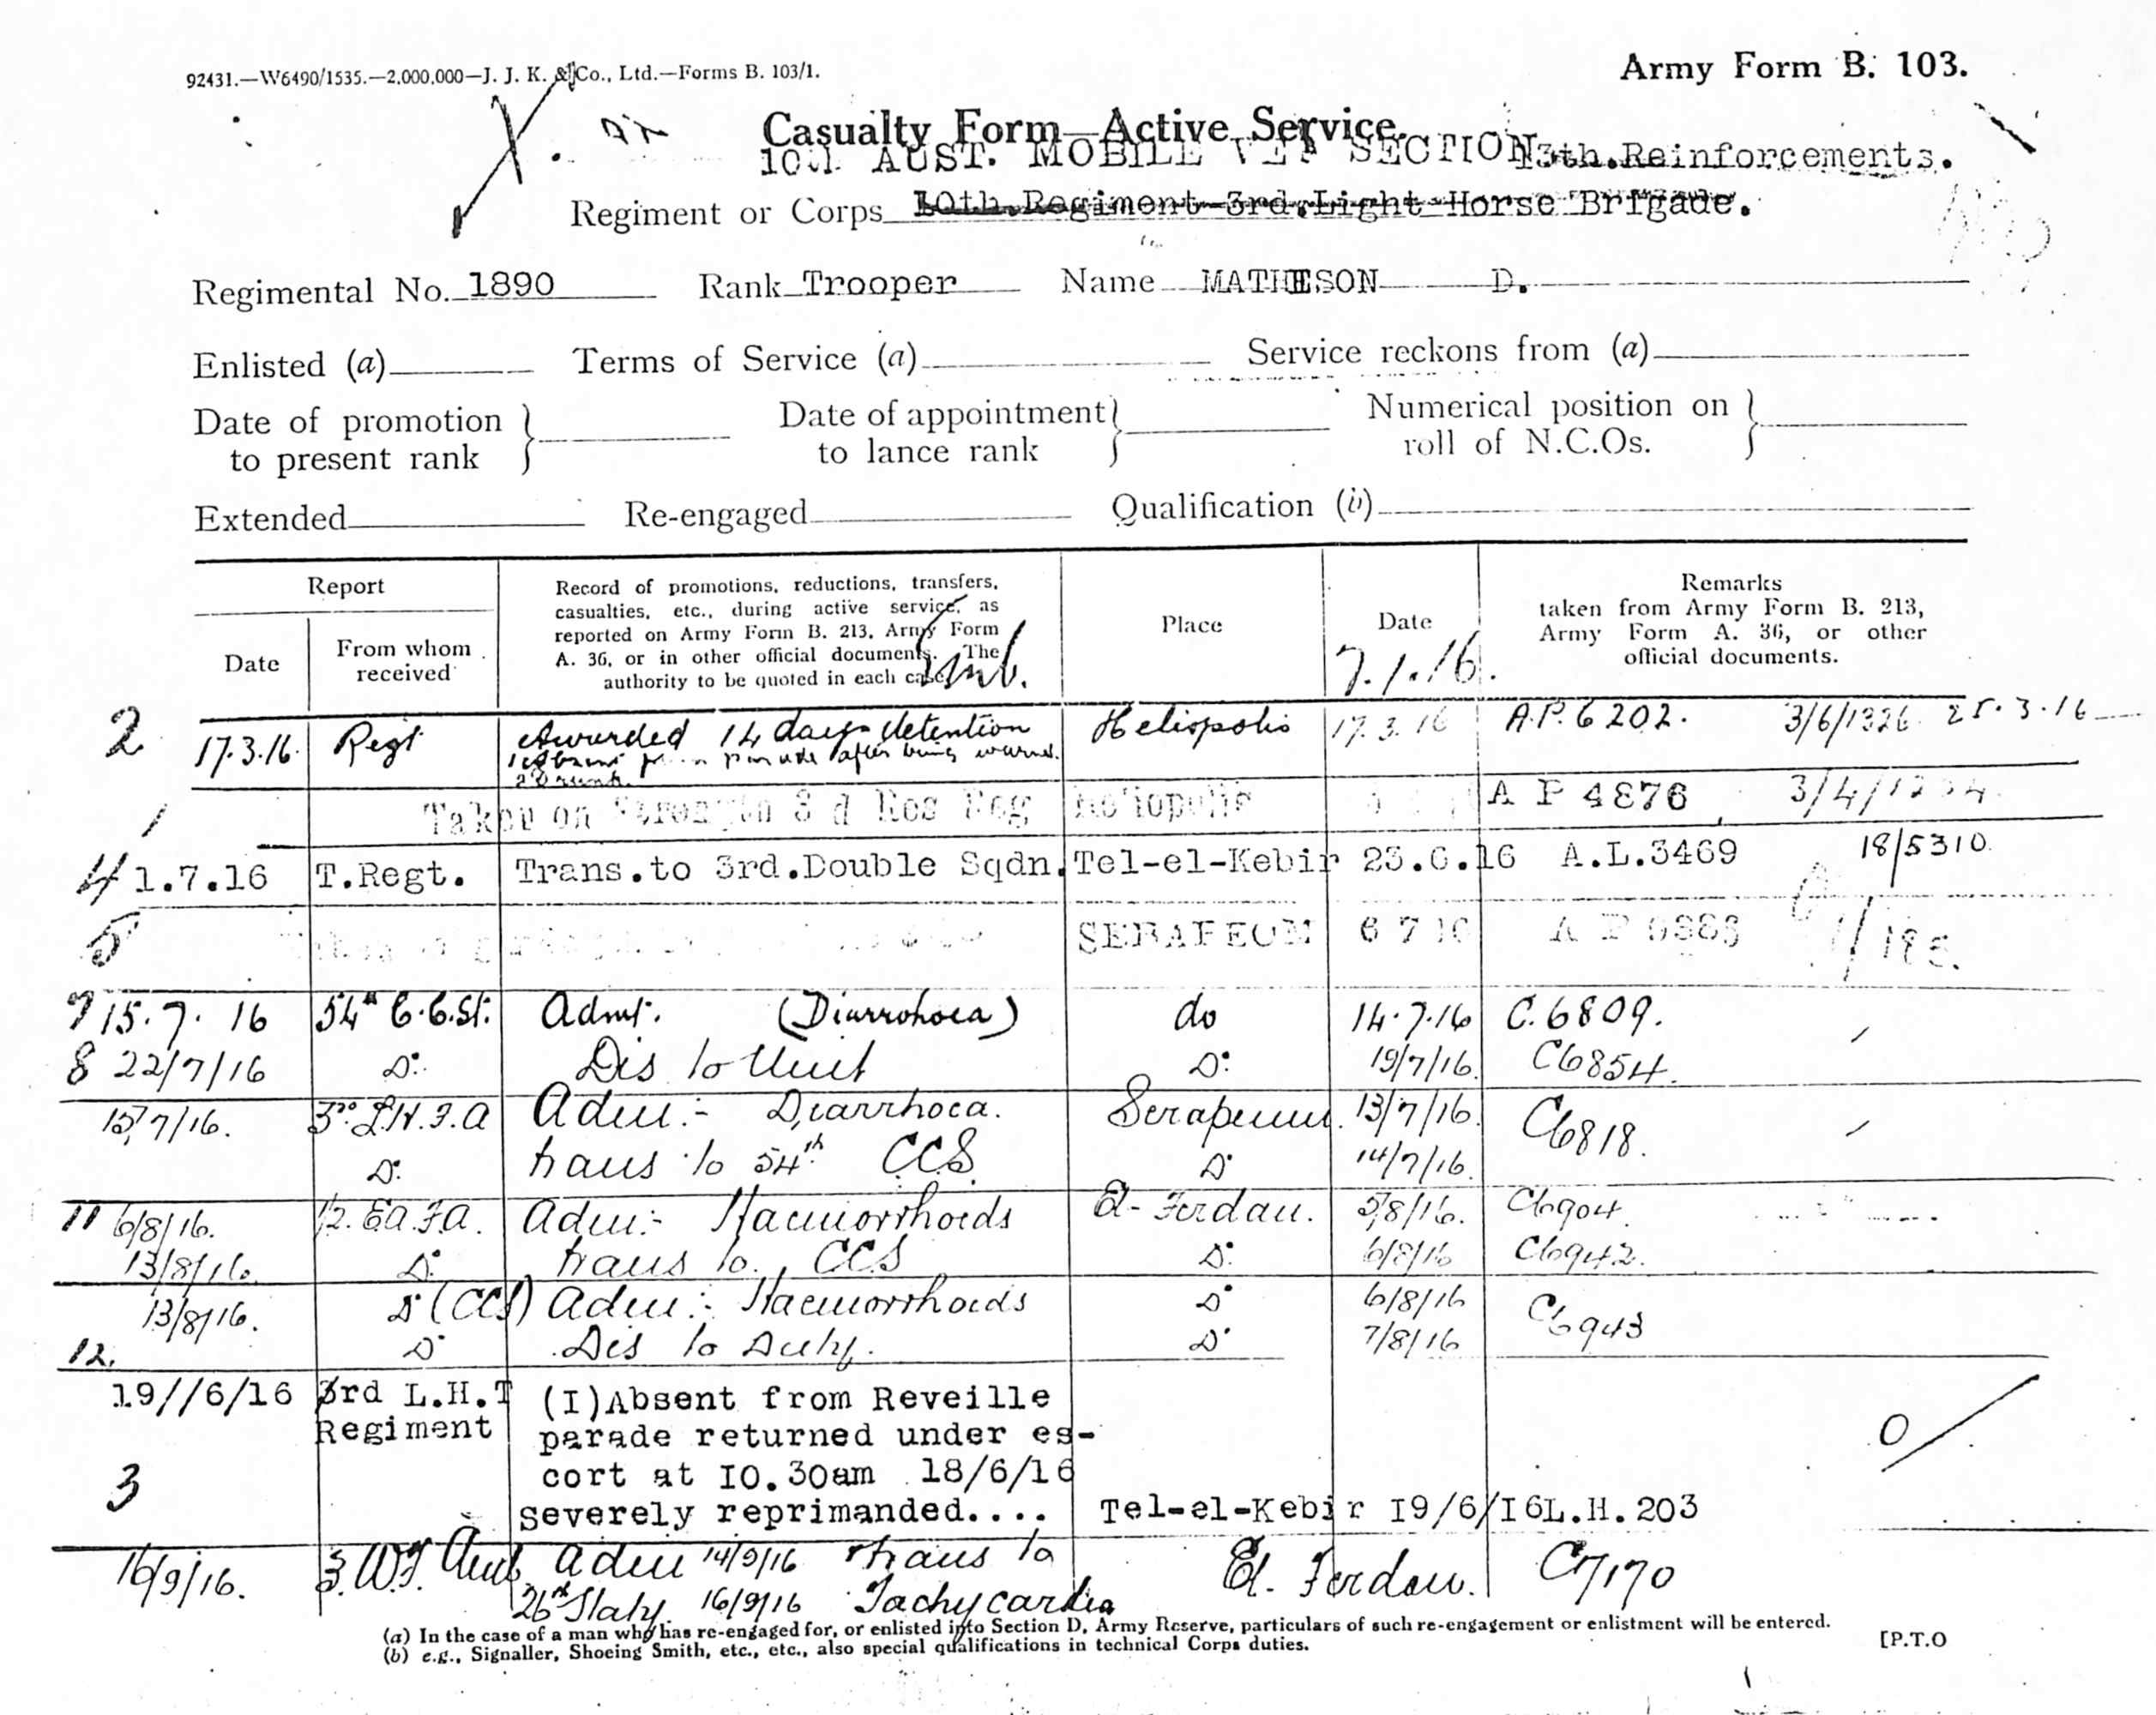 92431.—W6490/1535.—2,000,000—J. J. K. & Co., Ltd.—Forms B. 103/1.
Army Form B. 103.
Casualty Form—Active Service.
AUST. MOBILE VET SECTION 13th.Reinforcements.
Regiment or Corps 10th.Regiment 3rd.Light Horse Brigade.
Regimental No. 1890 Rank Trooper Name MATHESON D.
Enlisted (a) Terms of Service (a) Service reckons from (a)
Date of promotion to present rank } Date of appointment to lance rank } Numerical position on roll of N.C.Os. }
Extended Re-engaged Qualification (b)
Report
Date
From whom received
Record of promotions, reductions, transfers,
casualties, etc., during active service, as
reported on Army Form B. 213, Army Form
A. 36, or in other official documents. The
authority to be quoted in each case.
Place
Date
7.1.16.
Remarks
taken from Army Form B. 213,
Army Form A. 36, or other
official documents.
2 17.3.16. Regt Awarded 14 days detention Heliopolis 17.3.16 A.P. 6202. 3/6/1326 25.3.16
parade after being warned.
1 Taken on Strength 3 d Res Reg Heliopolis A P 4876 3/4/
4 1.7.16 T.Regt. Trans.to 3rd.Double Sqdn. Tel-el-Kebir 23.6.16 A.L.3469 18/5310.
5 SERAPEUM 6 7 16 A P
7 15.7.16 54th C.C.St. Admt. (Diarrohoea) do 14.7.16 C.6809.
8 22/7/16 Do. Dis to Unit Do 19/7/16. C6854.
15/7/16. 3rd L.H.F.A Adm:- Diarrhoea. Serapeum. 13/7/16. C6818.
Do. trans to 54th CCS Do 14/7/16.
11 6/8/16. 1/2. E.A.F.A. Adm:- Haemorrhoids El-Ferdan. 5/8/16. C6904.
13/8/16. Do. trans to. CCS Do. 6/8/16 C6942.
13/8/16. Do (CCS) Adm:- Haemorrhoids Do 6/8/16 C6943
12. Do Dis to Duty. Do 7/8/16
19//6/16 3rd L.H.T (I)Absent from Reveille
Regiment parade returned under es-
cort at IO.30am 18/6/16
3 severely reprimanded.... Tel-el-Kebir I9/6/I6 L.H.203
16/9/16. 3. W.F. Amb Adm 14/9/16 trans to El. Ferdan. C7170
26th Staty. 16/9/16 Tachycardia
(a) In the case of a man who has re-engaged for, or enlisted into Section D, Army Reserve, particulars of such re-engagement or enlistment will be entered.
(b) e.g., Signaller, Shoeing Smith, etc., etc., also special qualifications in technical Corps duties.
[P.T.O